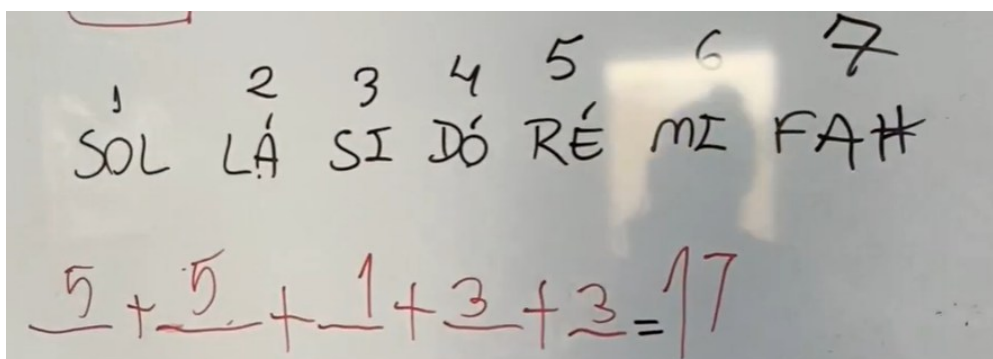 1 2 3 4 5 6 7
SOL LÁ SI DÓ RÉ MI FA#
5 + 5 + 1 + 3 + 3 = 17